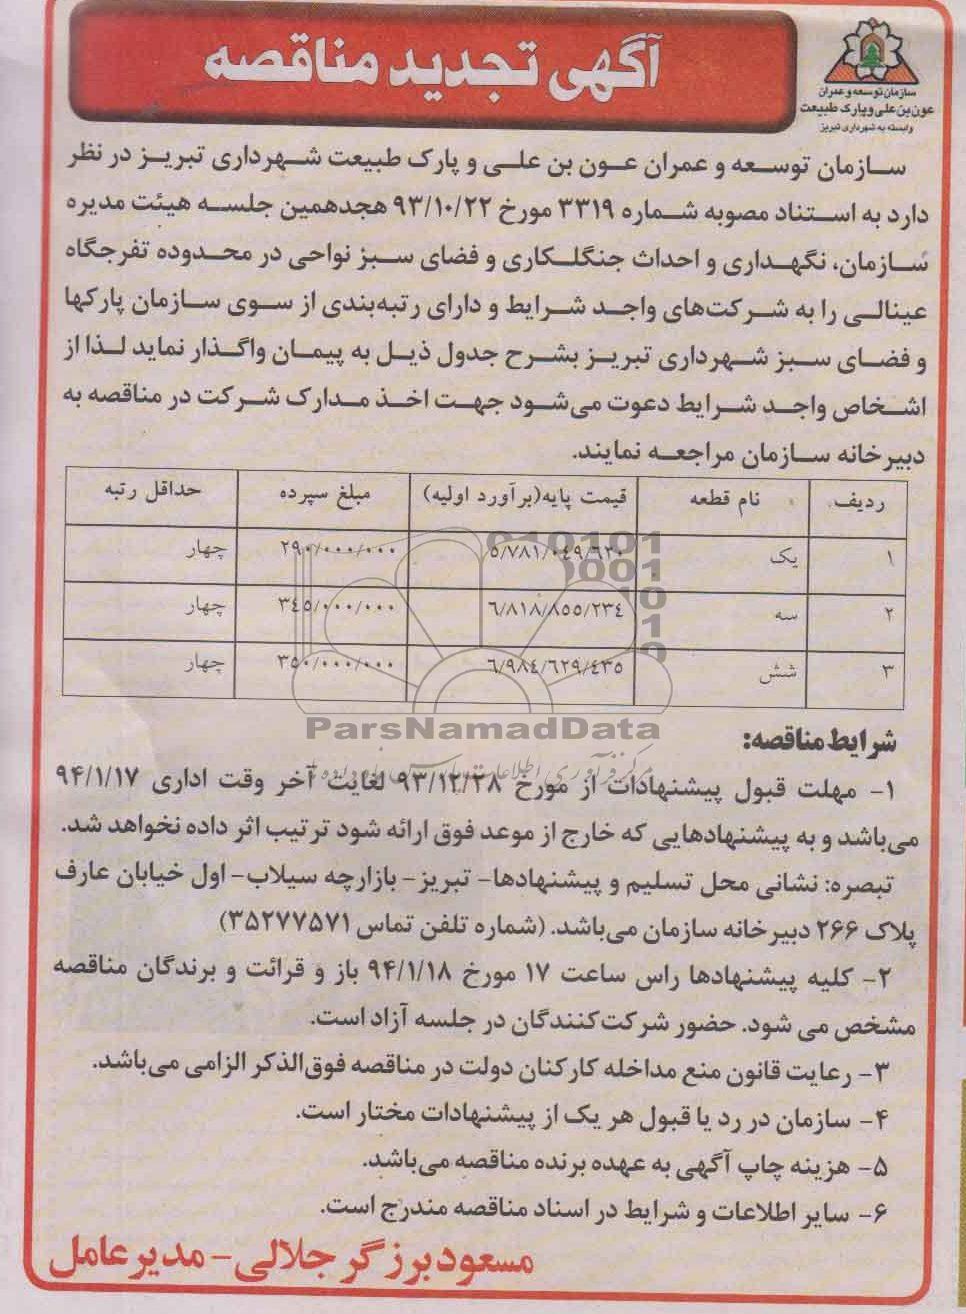 آگهی تجدید مناقصه
سازمان توسعه و عمران
عون بن علی و پارک طبیعت
وابسته به شهرداری تبریز
سازمان توسعه و عمران عون بن علی و پارک طبیعت شهرداری تبریز در نظر
دارد به استناد مصوبه شماره ۳۳۱۹ مورخ ۹۳/۱۰/۲۲ هجدهمین جلسه هیئت مدیره
سازمان، نگهداری و احداث جنگلکاری و فضای سبز نواحی در محدوده تفرجگاه
عینالی را به شرکت‌های واجد شرایط و دارای رتبه‌بندی از سوی سازمان پارکها
و فضای سبز شهرداری تبریز بشرح جدول ذیل به پیمان واگذار نماید لذا از
اشخاص واجد شرایط دعوت می‌شود جهت اخذ مدارک شرکت در مناقصه به
دبیرخانه سازمان مراجعه نمایند.
ردیف نام قطعه قیمت پایه(برآورد اولیه) مبلغ سپرده حداقل رتبه
۱ یک ۵/۷۸۱/۰۴۹/۶۲۰ ۲۹۰/۰۰۰/۰۰۰ چهار
۲ سه ۶/۸۱۸/۸۵۵/۲۳۴ ۳۴۵/۰۰۰/۰۰۰ چهار
۳ شش ۶/۹۸۴/۶۲۹/۴۳۵ ۳۵۰/۰۰۰/۰۰۰ چهار
ParsNamadData
شرایط مناقصه:
۱- مهلت قبول پیشنهادات از مورخ ۹۳/۱۲/۲۸ لغایت آخر وقت اداری ۹۴/۱/۱۷
می‌باشد و به پیشنهادهایی که خارج از موعد فوق ارائه شود ترتیب اثر داده نخواهد شد.
تبصره: نشانی محل تسلیم و پیشنهادها- تبریز- بازارچه سیلاب- اول خیابان عارف
پلاک ۲۶۶ دبیرخانه سازمان می‌باشد. (شماره تلفن تماس ۳۵۲۷۷۵۷۱)
۲- کلیه پیشنهادها راس ساعت ۱۷ مورخ ۹۴/۱/۱۸ باز و قرائت و برندگان مناقصه
مشخص می شود. حضور شرکت‌کنندگان در جلسه آزاد است.
۳- رعایت قانون منع مداخله کارکنان دولت در مناقصه فوق‌الذکر الزامی می‌باشد.
۴- سازمان در رد یا قبول هر یک از پیشنهادات مختار است.
۵- هزینه چاپ آگهی به عهده برنده مناقصه می‌باشد.
۶- سایر اطلاعات و شرایط در اسناد مناقصه مندرج است.
مسعود برزگر جلالی - مدیرعامل